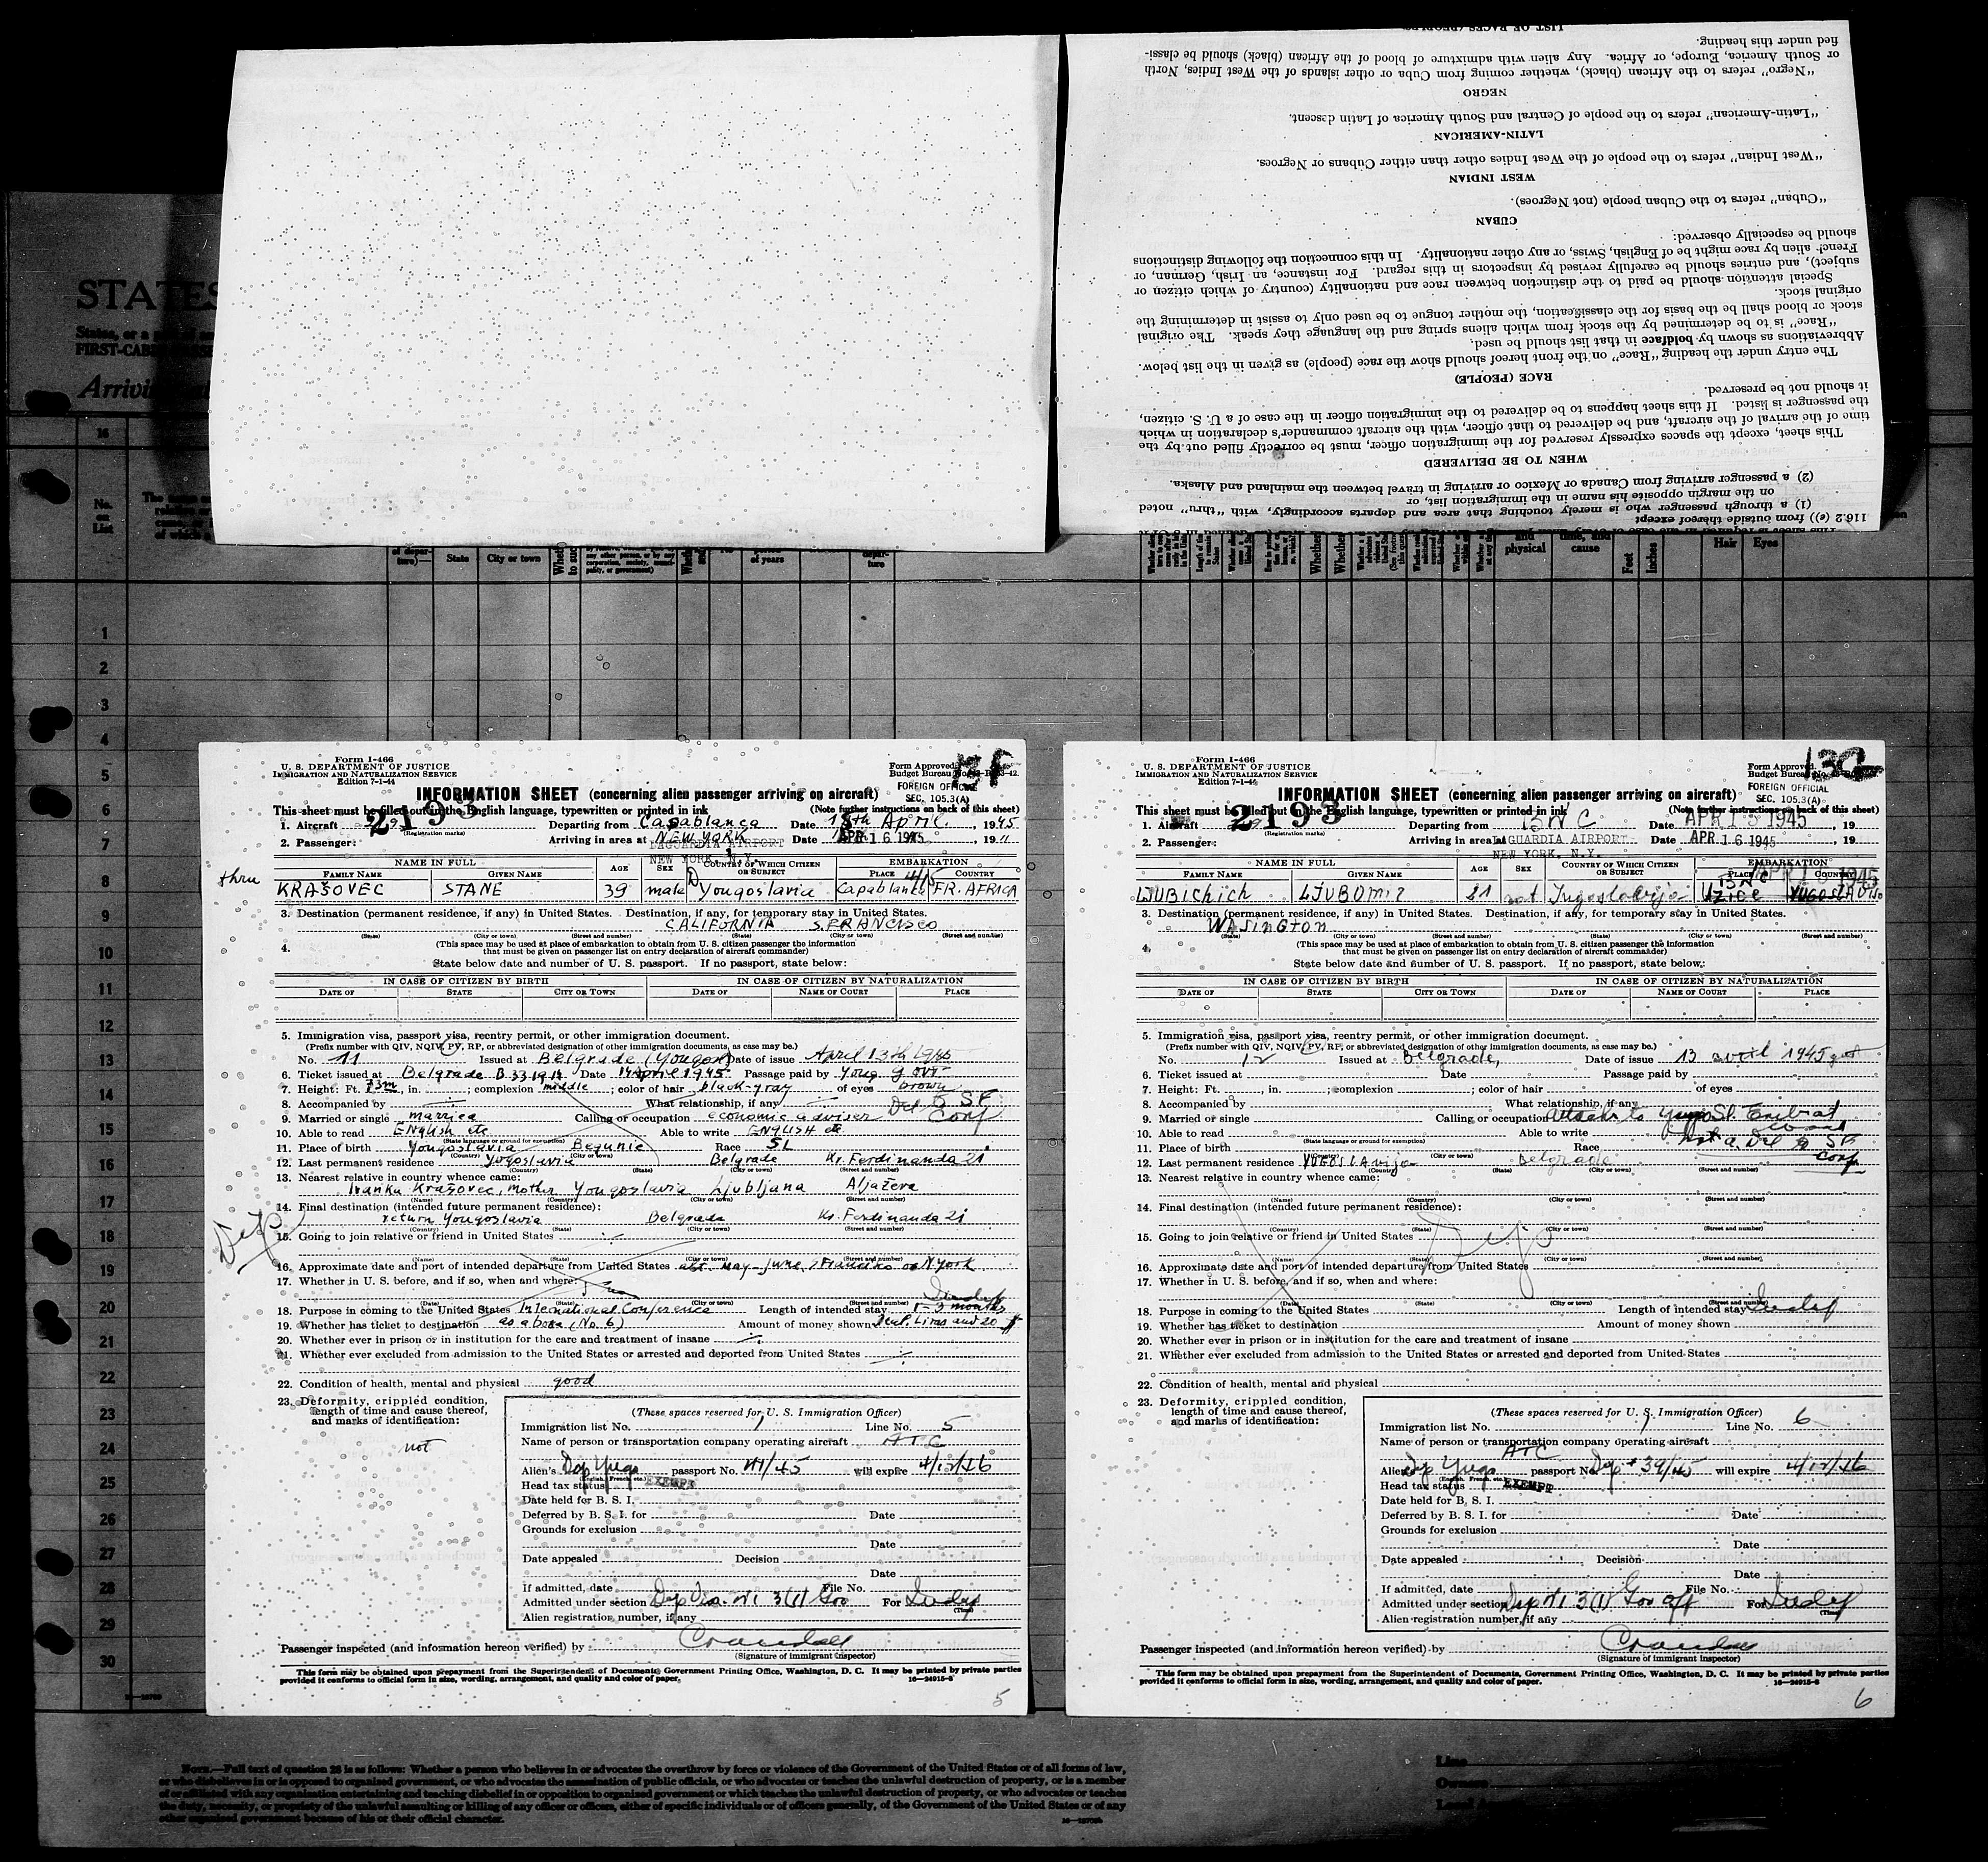 LIST OF RACES (PEOPLES)
fied under this heading.
or South America, Europe, or Africa. Any alien with admixture of blood of the African (black) should be classi-
"Negro" refers to the African (black), whether coming from Cuba or other islands of the West Indies, North
NEGRO
"Latin-American" refers to the people of Central and South America of Latin descent.
LATIN-AMERICAN
"West Indian" refers to the people of the West Indies other than either Cubans or Negroes.
WEST INDIAN
"Cuban" refers to the Cuban people (not Negroes).
CUBAN
should be especially observed:
French alien by race might be of English, Swiss, or any other nationality. In this connection the following distinctions
subject), and entries should be carefully revised by inspectors in this regard. For instance, an Irish, German, or
Special attention should be paid to the distinction between race and nationality (country of which citizen or
original stock.
stock or blood shall be the basis for the classification, the mother tongue to be used only to assist in determining the
"Race" is to be determined by the stock from which aliens spring and the language they speak. The original
Abbreviations as shown by boldface in that list should be used.
The entry under the heading "Race" on the front hereof should show the race (people) as given in the list below.
RACE (PEOPLE)
it should not be preserved.
the passenger is listed. If this sheet happens to be delivered to the immigration officer in the case of a U. S. citizen,
time of the arrival of the aircraft, and be delivered to that officer, with the aircraft commander's declaration in which
This sheet, except the spaces expressly reserved for the immigration officer, must be correctly filled out by the
WHEN TO BE DELIVERED
(2) a passenger arriving from Canada or Mexico or arriving in travel between the mainland and Alaska.
on the margin opposite his name in the immigration list, or
(1) a through passenger who is merely touching that area and departs accordingly, with "thru" noted
116.2 (e)) from outside thereof except
STATES
States, or a
FIRST-CAB
Arrivi
16
No. on List
of depar-ture)— State City or town of years depar-ture
and physical time, and cause Feet Inches Hair Eyes
1
2
3
4
5
6
7
8
9
10
11
12
13
14
15
16
17
18
19
20
21
22
23
24
25
26
27
28
29
30
Form I-466
U. S. DEPARTMENT OF JUSTICE
IMMIGRATION AND NATURALIZATION SERVICE
Edition 7-1-44
Form Approved.
Budget Bureau No.
13F
FOREIGN OFFICIAL
SEC. 105.3(A)
INFORMATION SHEET (concerning alien passenger arriving on aircraft)
This sheet must be filled out in the English language, typewritten or printed in ink (Note further instructions on back of this sheet)
2193
1. Aircraft (Registration marks) Departing from Casablanca Date 15th April, 1945
2. Passenger: Arriving in area at NEW YORK Date APR 16 1945, 19
LAGUARDIA AIRPORT
NEW YORK, N.Y.
NAME IN FULL AGE SEX COUNTRY OF WHICH CITIZEN OR SUBJECT EMBARKATION
FAMILY NAME GIVEN NAME PLACE COUNTRY
thru
KRAŠOVEC STANE 39 male Yougoslavia Casablanca FR. AFRICA
3. Destination (permanent residence, if any) in United States. Destination, if any, for temporary stay in United States.
CALIFORNIA S. FRANCISCO
(State) (City or town) (Street and number) (State) (City or town) (Street and number)
4. (This space may be used at place of embarkation to obtain from U. S. citizen passenger the information
that must be given on passenger list on entry declaration of aircraft commander)
State below date and number of U. S. passport. If no passport, state below:
IN CASE OF CITIZEN BY BIRTH IN CASE OF CITIZEN BY NATURALIZATION
DATE OF STATE CITY OR TOWN DATE OF NAME OF COURT PLACE
5. Immigration visa, passport visa, reentry permit, or other immigration document.
(Prefix number with QIV, NQIV, PV, RP, or abbreviated designation of other immigration documents, as case may be.)
No. 11 Issued at Belgrade (Yougosl) Date of issue April 13th 1945
6. Ticket issued at Belgrade Date 14 April 1945 Passage paid by Youg. Govt
7. Height: Ft. 73m, in. ; complexion middle ; color of hair black-gray of eyes brown
8. Accompanied by What relationship, if any Del. to SF Conf
9. Married or single married Calling or occupation economic adviser
10. Able to read English etc Able to write ENGLISH etc.
(State language or ground for exemption)
11. Place of birth Yougoslavia Begunje Race SL
(Country) (City or town)
12. Last permanent residence Yugoslavia Belgrade Kr. Ferdinanda 21
(Country) (State) (City or town) (Street and number)
13. Nearest relative in country whence came:
Ivanka Krašovec, mother Yougoslavia Ljubljana Aljaževa
(Name) (Country) (City or town) (Street and number)
14. Final destination (intended future permanent residence):
return Yougoslavia Belgrade Kr. Ferdinanda 21
(Country) (State) (City or town) (Street and number)
15. Going to join relative or friend in United States
Dip
(Name) (State) (City or town) (Street and number)
16. Approximate date and port of intended departure from United States abt. may-june, Francisko or N York
17. Whether in U. S. before, and if so, when and where:
(Date) (State) (City or town) (Street and number)
18. Purpose in coming to the United States International Conference Length of intended stay 1-3 months
19. Whether has ticket to destination as above (No. 6) Amount of money shown
20. Whether ever in prison or in institution for the care and treatment of insane
21. Whether ever excluded from admission to the United States or arrested and deported from United States
22. Condition of health, mental and physical good
23. Deformity, crippled condition,
length of time and cause thereof,
and marks of identification:
not
(These spaces reserved for U. S. Immigration Officer)
Immigration list No. 1 Line No. 5
Name of person or transportation company operating aircraft ATC
Alien's Dip Yugo passport No. 41/45 will expire 4/12/46
(English, French, etc.)
Head tax status EXEMPT
Date held for B. S. I.
Deferred by B. S. I. for Date
Grounds for exclusion
Date
Date appealed Decision
Date
If admitted, date File No.
Admitted under section Dip Visa 3(1) Gov For Indef
(Time)
Alien registration number, if any
Passenger inspected (and information hereon verified) by Crandall
(Signature of immigrant inspector)
This form may be obtained upon prepayment from the Superintendent of Documents, Government Printing Office, Washington, D. C. It may be printed by private parties
provided it conforms to official form in size, wording, arrangement, and quality and color of paper. 16—24915-2
5
Form I-466
U. S. DEPARTMENT OF JUSTICE
IMMIGRATION AND NATURALIZATION SERVICE
Edition 7-1-44
Form Approved.
Budget Bureau No.
FOREIGN OFFICIAL
SEC. 105.3(A)
INFORMATION SHEET (concerning alien passenger arriving on aircraft)
This sheet must be filled out in the English language, typewritten or printed in ink (Note further instructions on back of this sheet)
2193
1. Aircraft (Registration marks) Departing from Date APR 15 1945, 19
2. Passenger: Arriving in area at LAGUARDIA AIRPORT Date APR 16 1945, 19
NEW YORK, N.Y.
NAME IN FULL AGE SEX COUNTRY OF WHICH CITIZEN OR SUBJECT EMBARKATION
FAMILY NAME GIVEN NAME PLACE COUNTRY
LJUBICHICH LJUBOMIR Jugoslavija UZICE
3. Destination (permanent residence, if any) in United States. Destination, if any, for temporary stay in United States.
WASINGTON
(State) (City or town) (Street and number) (State) (City or town) (Street and number)
4. (This space may be used at place of embarkation to obtain from U. S. citizen passenger the information
that must be given on passenger list on entry declaration of aircraft commander)
State below date and number of U. S. passport. If no passport, state below:
IN CASE OF CITIZEN BY BIRTH IN CASE OF CITIZEN BY NATURALIZATION
DATE OF STATE CITY OR TOWN DATE OF NAME OF COURT PLACE
5. Immigration visa, passport visa, reentry permit, or other immigration document.
(Prefix number with QIV, NQIV, PV, RP, or abbreviated designation of other immigration documents, as case may be.)
No. 12 Issued at Belgrade, Date of issue 13 avril 1945
6. Ticket issued at Date Passage paid by
7. Height: Ft. , in. ; complexion ; color of hair of eyes
8. Accompanied by What relationship, if any
9. Married or single Calling or occupation
10. Able to read Able to write
(State language or ground for exemption)
not a Del to SF Conf
11. Place of birth Race
(Country) (City or town)
12. Last permanent residence YUGOSLAVIJA Belgrade
(Country) (State) (City or town) (Street and number)
13. Nearest relative in country whence came:
(Name) (Country) (City or town) (Street and number)
14. Final destination (intended future permanent residence):
(Country) (State) (City or town) (Street and number)
15. Going to join relative or friend in United States
Dip
(Name) (State) (City or town) (Street and number)
16. Approximate date and port of intended departure from United States
17. Whether in U. S. before, and if so, when and where:
(Date) (State) (City or town) (Street and number)
18. Purpose in coming to the United States Length of intended stay Indef
19. Whether has ticket to destination Amount of money shown
20. Whether ever in prison or in institution for the care and treatment of insane
21. Whether ever excluded from admission to the United States or arrested and deported from United States
22. Condition of health, mental and physical
23. Deformity, crippled condition,
length of time and cause thereof,
and marks of identification:
(These spaces reserved for U. S. Immigration Officer)
Immigration list No. 1 Line No. 6
Name of person or transportation company operating aircraft
ATC
Alien's Dip Yugo passport No. Dip 39/45 will expire 4/12/46
(English, French, etc.)
Head tax status EXEMPT
Date held for B. S. I.
Deferred by B. S. I. for Date
Grounds for exclusion
Date
Date appealed Decision
Date
If admitted, date File No.
Admitted under section Dip 3(1) Gov Off For Indef
(Time)
Alien registration number, if any
Passenger inspected (and information hereon verified) by Crandall
(Signature of immigrant inspector)
This form may be obtained upon prepayment from the Superintendent of Documents, Government Printing Office, Washington, D. C. It may be printed by private parties
provided it conforms to official form in size, wording, arrangement, and quality and color of paper. 16—24915-2
6
NOTE.—Full text of question 28 is as follows: Whether a person who believes in or advocates the overthrow by force or violence of the Government of the United States or of all forms of law,
or who disbelieves in or is opposed to organized government, or who advocates the assassination of public officials, or who advocates or teaches the unlawful destruction of property, or is a member
of or affiliated with any organization entertaining and teaching disbelief in or opposition to organized government or which teaches the unlawful destruction of property, or who advocates or teaches
the duty, necessity, or propriety of the unlawful assaulting or killing of any officer or officers, either of specific individuals or of officers generally, of the Government of the United States or of any
other organized government because of his or their official character.
Line
Owners
Local